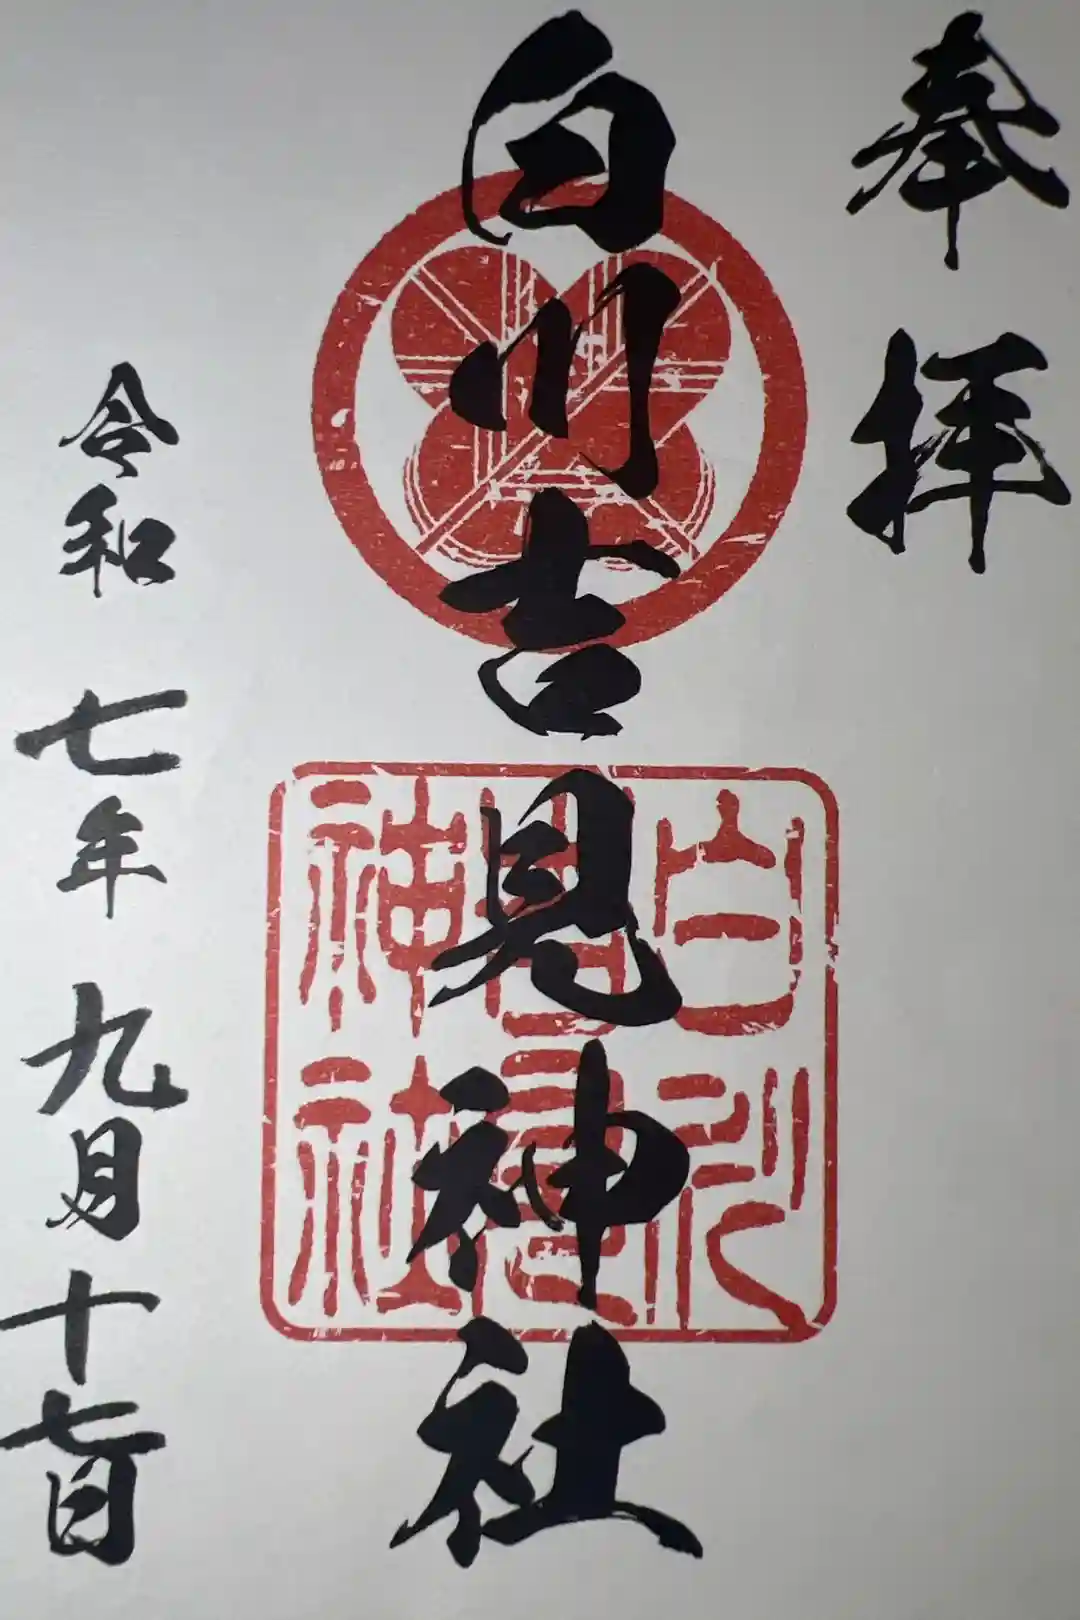 奉拝
白川吉見神社
白川吉見神社
令和七年九月十七日